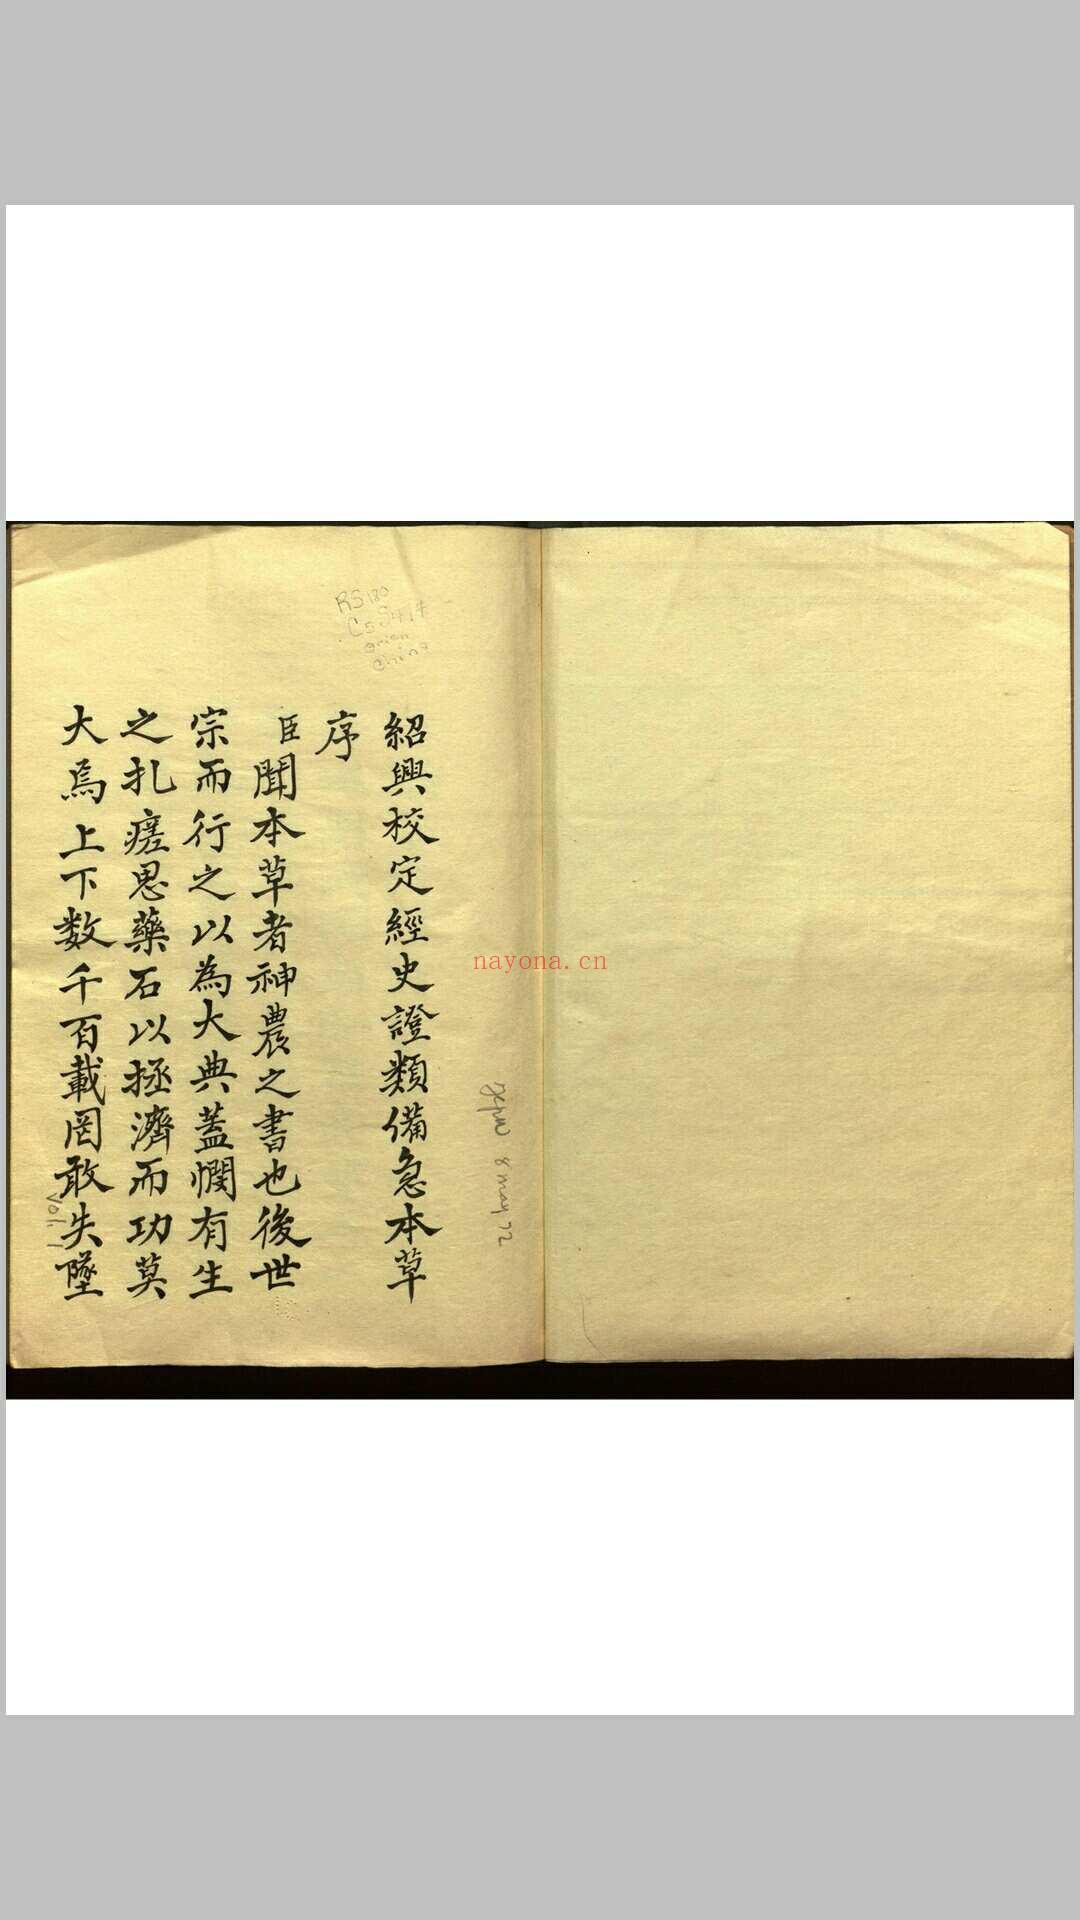 紹興校定經史證類備急本草
序
臣聞本草者神農之書也後世
宗而行之以為大典蓋憫有生
之札瘥思藥石以拯濟而功莫
大焉上下数千百載罔敢失墜
RS180
C5S414
orien
China
8 may 72
Vol. 1
nayona.cn